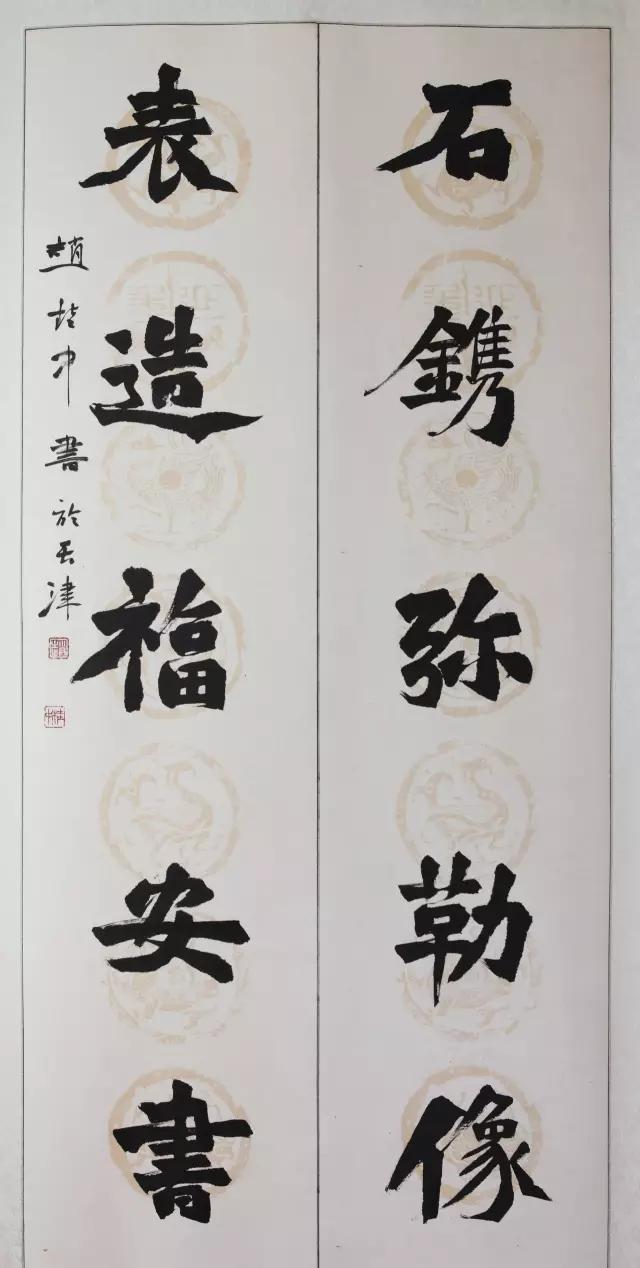 石鐫弥勒像
表造福安書
趙 中書於天津